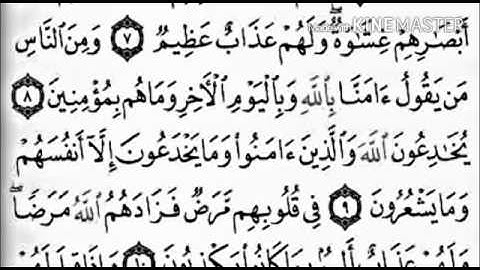 KINEMASTER
أَبْصَٰرِهِمْ غِشَٰوَةٌ ۖ وَلَهُمْ عَذَابٌ عَظِيمٌ ٧ وَمِنَ ٱلنَّاسِ
مَن يَقُولُ ءَامَنَّا بِٱللَّهِ وَبِٱلْيَوْمِ ٱلْأَخِرِ وَمَا هُم بِمُؤْمِنِينَ ٨
يُخَٰدِعُونَ ٱللَّهَ وَٱلَّذِينَ ءَامَنُوا۟ وَمَا يَخْدَعُونَ إِلَّآ أَنفُسَهُمْ
وَمَا يَشْعُرُونَ ٩ فِى قُلُوبِهِم مَّرَضٌ فَزَادَهُمُ ٱللَّهُ مَرَضًا ۖ